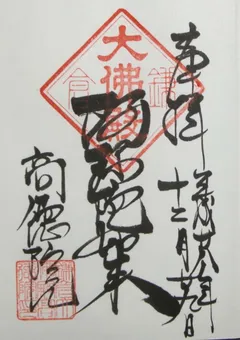 奉拝
十二月
鎌倉
大佛殿
阿弥陀如来
高徳院